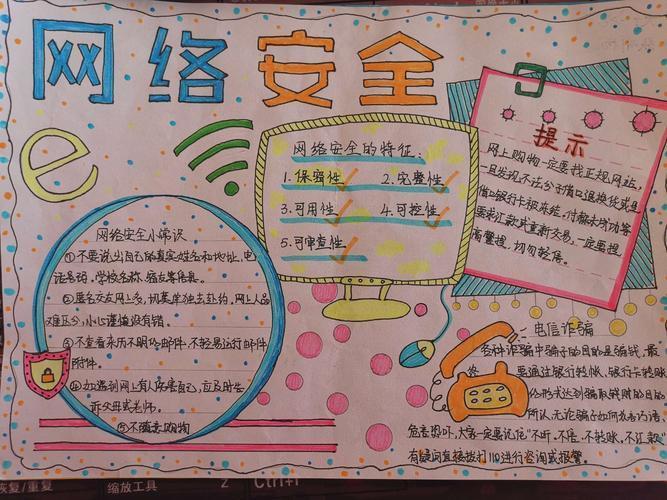 网络安全
e
网络安全的特征:
1.保密性 2.完整性
3.可用性 4.可控性
5.可审查性
提示
网上购物一定要找正规网站,
一旦发现不法分子借口退换货或是
借口银行卡被冻结,付款未成功等
要求汇款或重新交易,一定要提
高警惕,切勿轻信。
网络安全小常识
①不要说出自己的真实姓名和地址,电
话号码,学校名称,
②匿名交友网上多,切莫单独去赴约,网上人品
难区分,小心谨慎没有错。
③不查看来历不明的邮件,不轻易运行邮件
附件。
④如遇到网上有人伤害自己,应及时告
诉父母或老师。
⑤不随意购物
电信诈骗
各种诈骗中骗子的目的是骗钱,最
要通过银行转帐,银行卡转账
形式达到骗取钱财的目的
所以,无论骗子如何花言巧语,
危言恐吓,大家一定要记住“不听、不信、不转账、不汇款”
有疑问直接拨打110进行咨询或报警。
恢复/重复
缩放工具
Z
Ctrl+